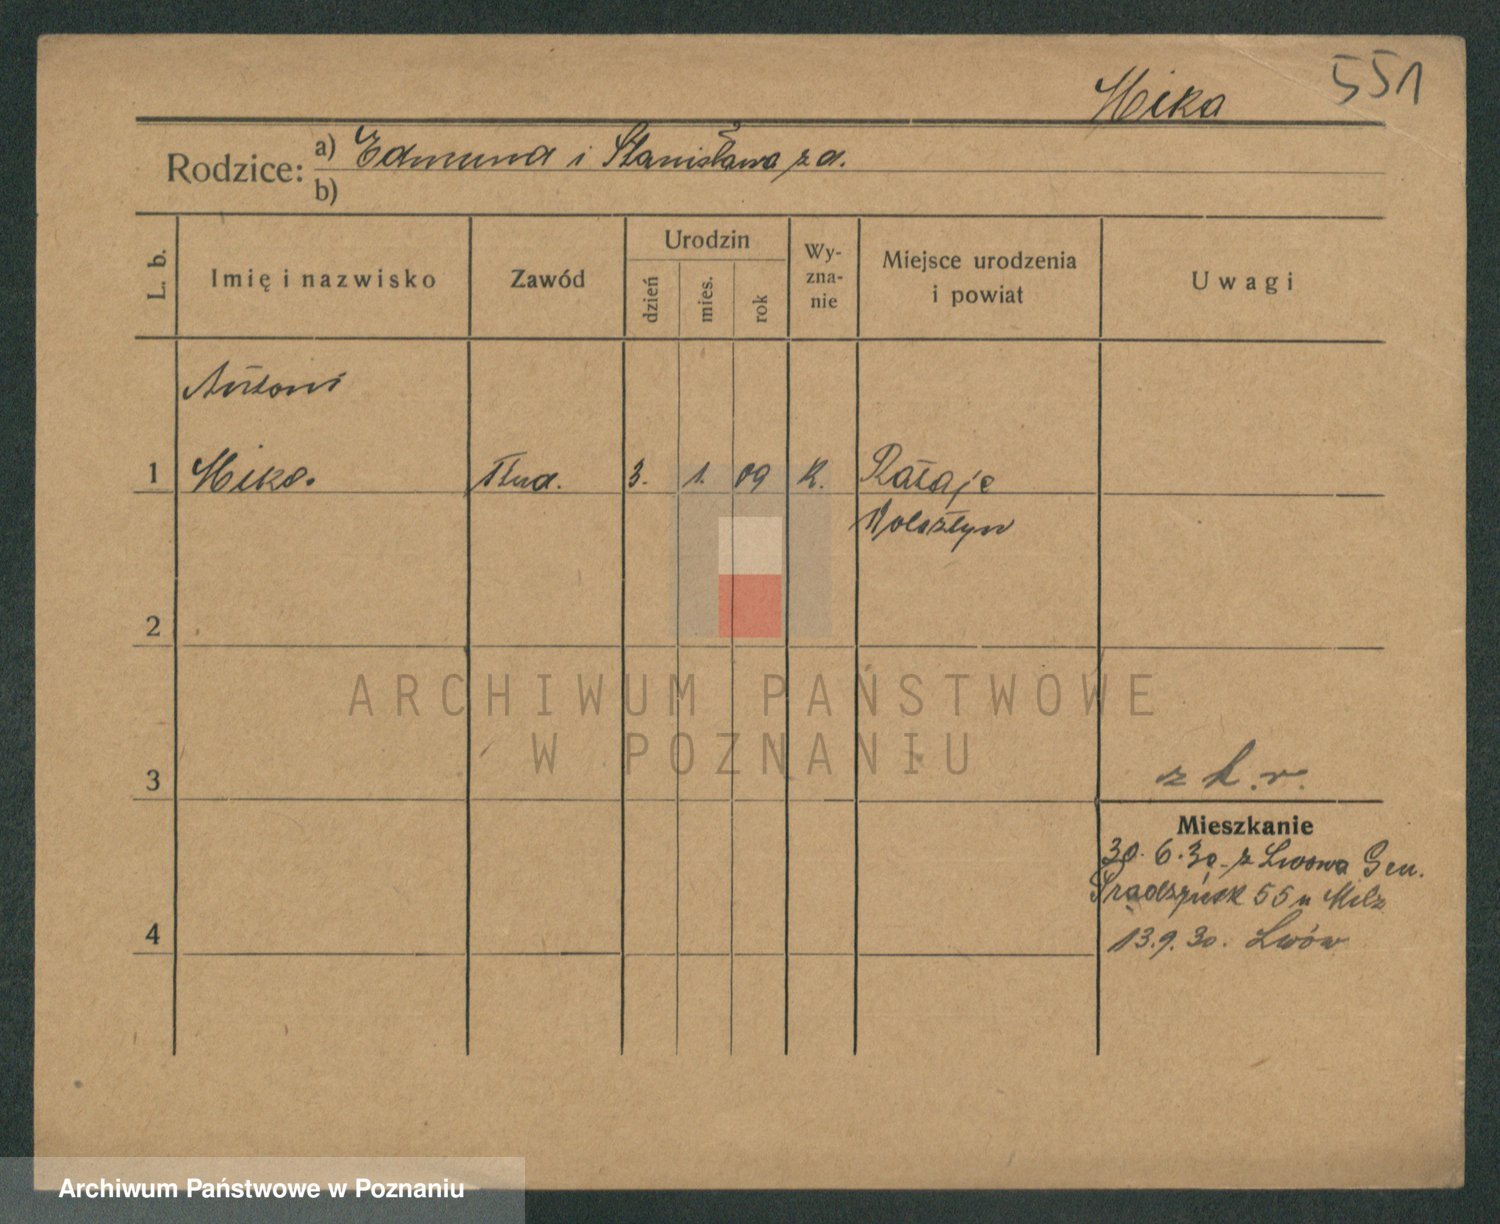 551
Mika
Rodzice: a) Edmund i Stanisława z d.
b)
L. b.
Imię i nazwisko
Zawód
Urodzin
dzień
mies.
rok
Wy-
zna-
nie
Miejsce urodzenia
i powiat
Uwagi
Antoni
1 Mika. Stud. 3. 1. 09 K. Rataje
Wolsztyn
2
3
z k. r.
Mieszkanie
30.6.30. z Lwowa Gen.
Prądzyńsk 55 u Milz
13.9.30. Lwów
4
ARCHIWUM PAŃSTWOWE
W POZNANIU
Archiwum Państwowe w Poznaniu